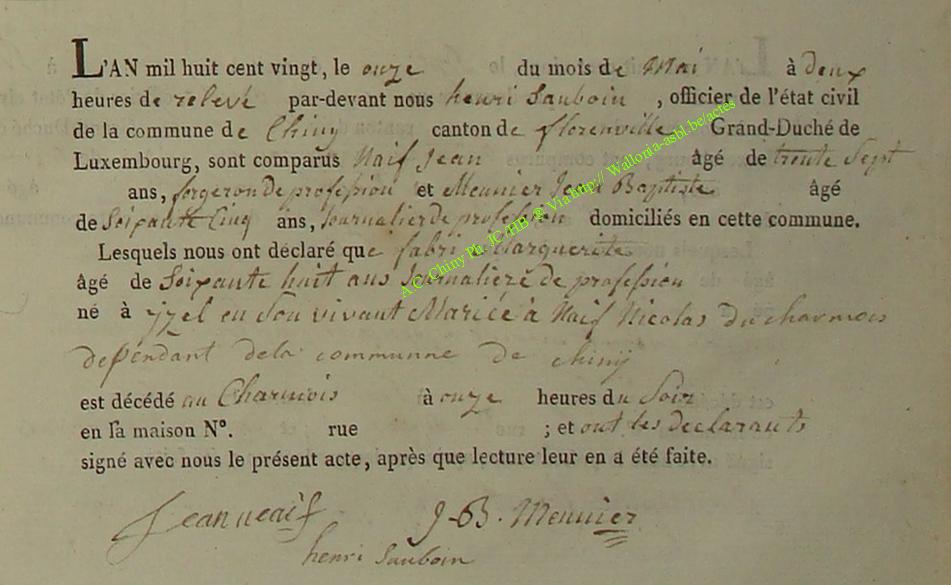 L'AN mil huit cent vingt, le onze du mois de Mai à deux
heures de relevé par-devant nous henri Sauboin , officier de l'état civil
de la commune de Chiny canton de florenville Grand-Duché de
Luxembourg, sont comparus Naif Jean âgé de trente Sept
ans, forgeron de profession et Meunier Jean Baptiste âgé
de Soixante Cinq ans, Journalier de profession domiciliés en cette commune.
Lesquels nous ont déclaré que fabri Marguerite
âgé de Soixante huit ans Journaliere de profession
né à yzel en Son vivant Mariée à Naif Nicolas du charmois
dependant de la communne de chiny
est décédé au Charmois à onze heures du Soir
en sa maison N°. rue ; et ont les declarants
signé avec nous le présent acte, après que lecture leur en a été faite.
Jean neaif J-B. Meunier
henri Sauboin
A.C. Chiny Ph. JC HB @ Via http// Wallonia-asbl.be/actes